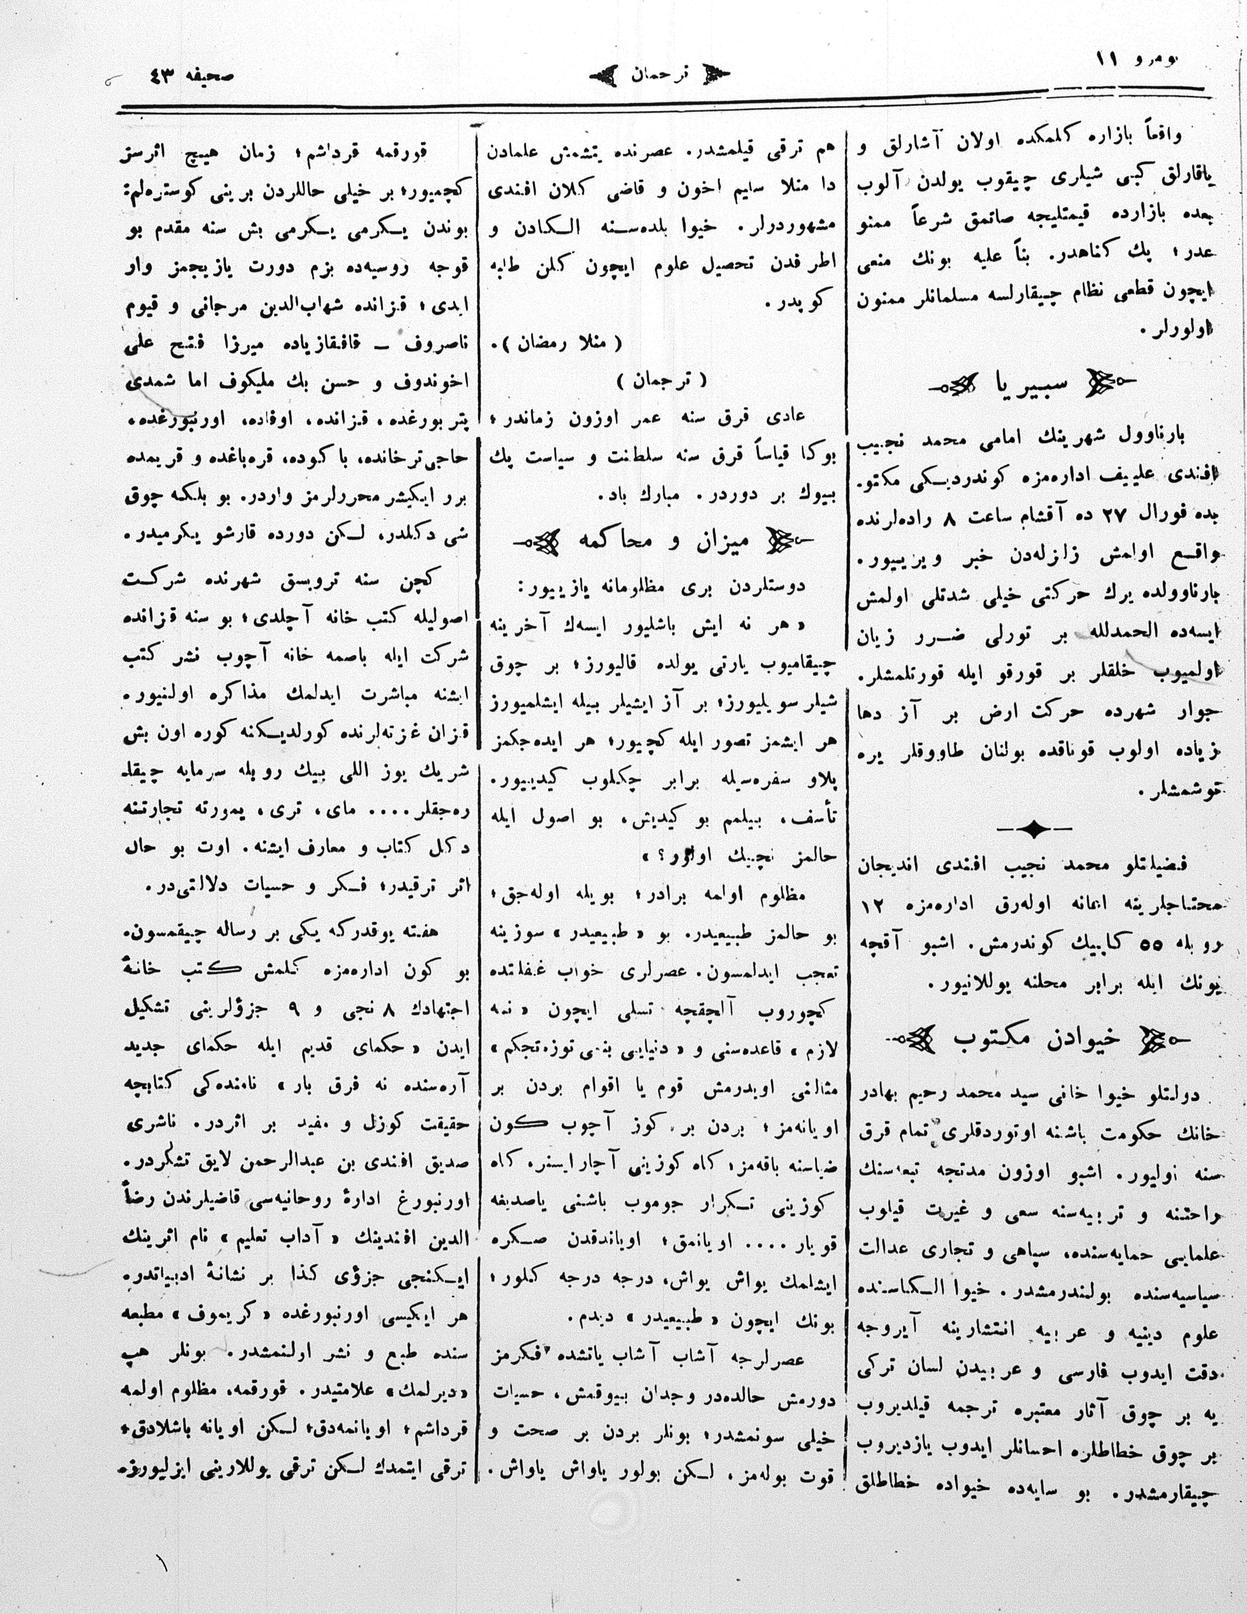 نومرو ١١
ترجمان
صحیفه ٤٣
واقعاً بازاره كلمكده اولان آشارلق و
یاقارلق كبی شیلری چیقوب یولدن آلوب
بعده بازارده قیمتلیجه صاتمق شرعاً ممنو
عدر؛ پك كناهدر. بنأ علیه بونك منعی
ایچون قطعی نظام چیقارلسه مسلمانلر ممنون
اولورلر.
سیبیریا
بارناوول شهرینك امامی محمد نجیب
افندی علییف اداره‌مزه كوندردیكی مكتو.
بده فورال ٢٧ ده آقشام ساعت ٨ راده‌لرنده
واقع اولمش زلزله‌دن خبر ویرییور.
بارناوولده یرك حركتی خیلی شدتلی اولمش
ایسه‌ده الحمدلله بر تورلی ضرر زیان
اولمیوب خلقلر بر قورقو ایله قورتلمشلر.
جوار شهرده حركت ارض بر آز دها
زیاده اولوب قوناقده بولنان طاووقلر یره
توشمشلر.
فضیلتلو محمد نجیب افندی اندیجان
محتاجلرینه اعانه اوله‌رق اداره‌مزه ١٢
روبله ٥٥ كاپیك كوندرمش. اشبو آقچه
بونك ایله برابر محلنه یوللانیور.
خیوادن مكتوب
دولتلو خیوا خانی سید محمد رحیم بهادر
خانك حكومت باشنه اوتوردقلری تمام قرق
سنه اولیور. اشبو اوزون مدتجه تبعه‌سنك
راحتنه و تربیه‌سنه سعی و غیرت قیلوب
علمایی حمایه‌سنده، سپاهی و تجاری عدالت
سیاسیه‌سنده بولندرمشدر. خیوا الكه‌سنده
علوم دینیه و عربیه انتشارینه آیروجه
دقت ایدوب فارسی و عربیدن لسان تركی
یه بر چوق آثار معتبره ترجمه قیلدیروب
بر چوق خطاطلره احسانلر ایدوب یازدیروب
چیقارمشدر. بو سایه‌ده خیواده خطاطلق
هم ترقی قیلمشدر. عصرنده یتشمش علمادن
دا منلا سلیم اخون و قاضی كلان افندی
مشهوردرلر. خیوا بلده‌سنه الكادن و
اطرفدن تحصیل علوم ایچون كلن طلبه
كوپدر.
(منلا رمضان).
(ترجمان)
عادی قرق سنه عمر اوزون زماندر؛
بوكا قیاساً قرق سنه سلطنت و سیاست پك
بیوك بر دوردر. مبارك باد.
میزان و محاكمه
دوستلردن بری مظلومانه یازییور:
« هر نه ایش باشلیور ایسه‌ك آخرینه
چیقامیوب یارتی یولده قالیورز؛ بر چوق
شیلر سویلیورز؛ بر آز ایشیلر بیله ایشلمیورز
هر ایشمز تصور ایله كچیور؛ هر ایده‌جكمز
پلاو سفره‌سیله برابر چكیلوب كیدییور.
تأسف، بیلمم بو كیدیش، بو اصول ایله
حالمز نچیك اولور؟ »
مظلوم اولمه برادر؛ بویله اوله‌جق؛
بو حالمز طبیعیدر. بو « طبیعیدر » سوزینه
تعجب ایدلمسون. عصرلری خواب غفلتده
كچوروب آلچقچه تسلی ایچون « نمه
لازم » قاعده‌سنی و « دنیایی بنمی توزه‌تجكم »
مثالنی اویدرمش قوم یا اقوام بردن بر
اویانه‌مز؛ بردن بر كوز آچوب كون
ضیاسنه باقه‌مز؛ كاه كوزینی آچار ایسنر. كاه
كوزینی تكرار جوموب باشنی یاصدیغه
قویار .... اویانمق؛ اویاندقدن صكره
ایشلمك یواش یواش، درجه درجه كلور؛
بونك ایچون « طبیعیدر » دیدم.
عصرلرجه آشاب آشاب یاتشده فكرمز
دورمش حالده‌در وجدان بیوقمش، حسیات
خیلی سونمشدر؛ بونلر بردن بر صحت و
قوت بوله‌مز، لكن بولور یاواش یاواش.
قورقمه قرداشم؛ زمان هیچ اثرسز
كچمیور؛ بر خیلی حاللردن برینی كوستره‌لم:
بوندن یكرمی یكرمی بش سنه مقدم بو
قوجه روسیه‌ده بزم دورت یازیجمز وار
ایدی؛ قزانده شهاب‌الدین مرجانی و قیوم
ناصروف — قافقازیاده میرزا فتح علی
اخوندوف و حسن بك ملیكوف اما شمدی
پتربورغده، قزانده، اوفاده، اورنبورغده،
حاجی‌ترخانده، باكوده، قره‌باغده و قریمده
برو ایكیشر محررلرمز واردر. بو بلكه چوق
شی دكلدر، لكن دورده قارشو یكرمیدر.
كچن سنه ترویسق شهرنده شركت
اصولیله كتب خانه آچلدی؛ بو سنه قزانده
شركت ایله باصمه خانه آچوب نشر كتب
ایشنه مباشرت ایدلمك مذاكره اولنیور.
قزان غزته‌لرنده كورلدیكنه كوره اون بش
شریك یوز اللی بیك روبله سرمایه چیقا
ره‌جقلر.... مای، تری، یمورته تجارتنه
دكل كتاب و معارف ایشنه. اوت بو حال
اثر ترقیدر؛ فكر و حسیات دلالتی‌در.
هفته یوقدركه یكی بر رساله چیقمسون.
بو كون اداره‌مزه كلمش كتب خانهٔ
اجتهادك ٨ نجی و ٩ جزؤلرینی تشكیل
ایدن « حكمای قدیم ایله حكمای جدید
آره‌سنده نه فرق بار » نامنده‌كی كتابچه
حقیقت كوزل و مفید بر اثردر. ناشری
صدیق افندی بن عبدالرحمن لایق تشكردر.
اورنبورغ ادارهٔ روحانیه‌سی قاضیلرندن رضأ
الدین افندینك « آداب تعلیم » نام اثرینك
ایكنجی جزؤی كذا بر نشانهٔ ادبیاتدر.
هر ایكیسی اورنبورغده « كریموف » مطبعه
سنده طبع و نشر اولنمشدر. بونلر هپ
«دیرلمك» علامتیدر. قورقمه، مظلوم اولمه
قرداشم؛ اویانمه‌دق؛ لكن اویانه باشلادق؛
ترقی ایتمدك لكن ترقی یوللارینی ایزلیورز.